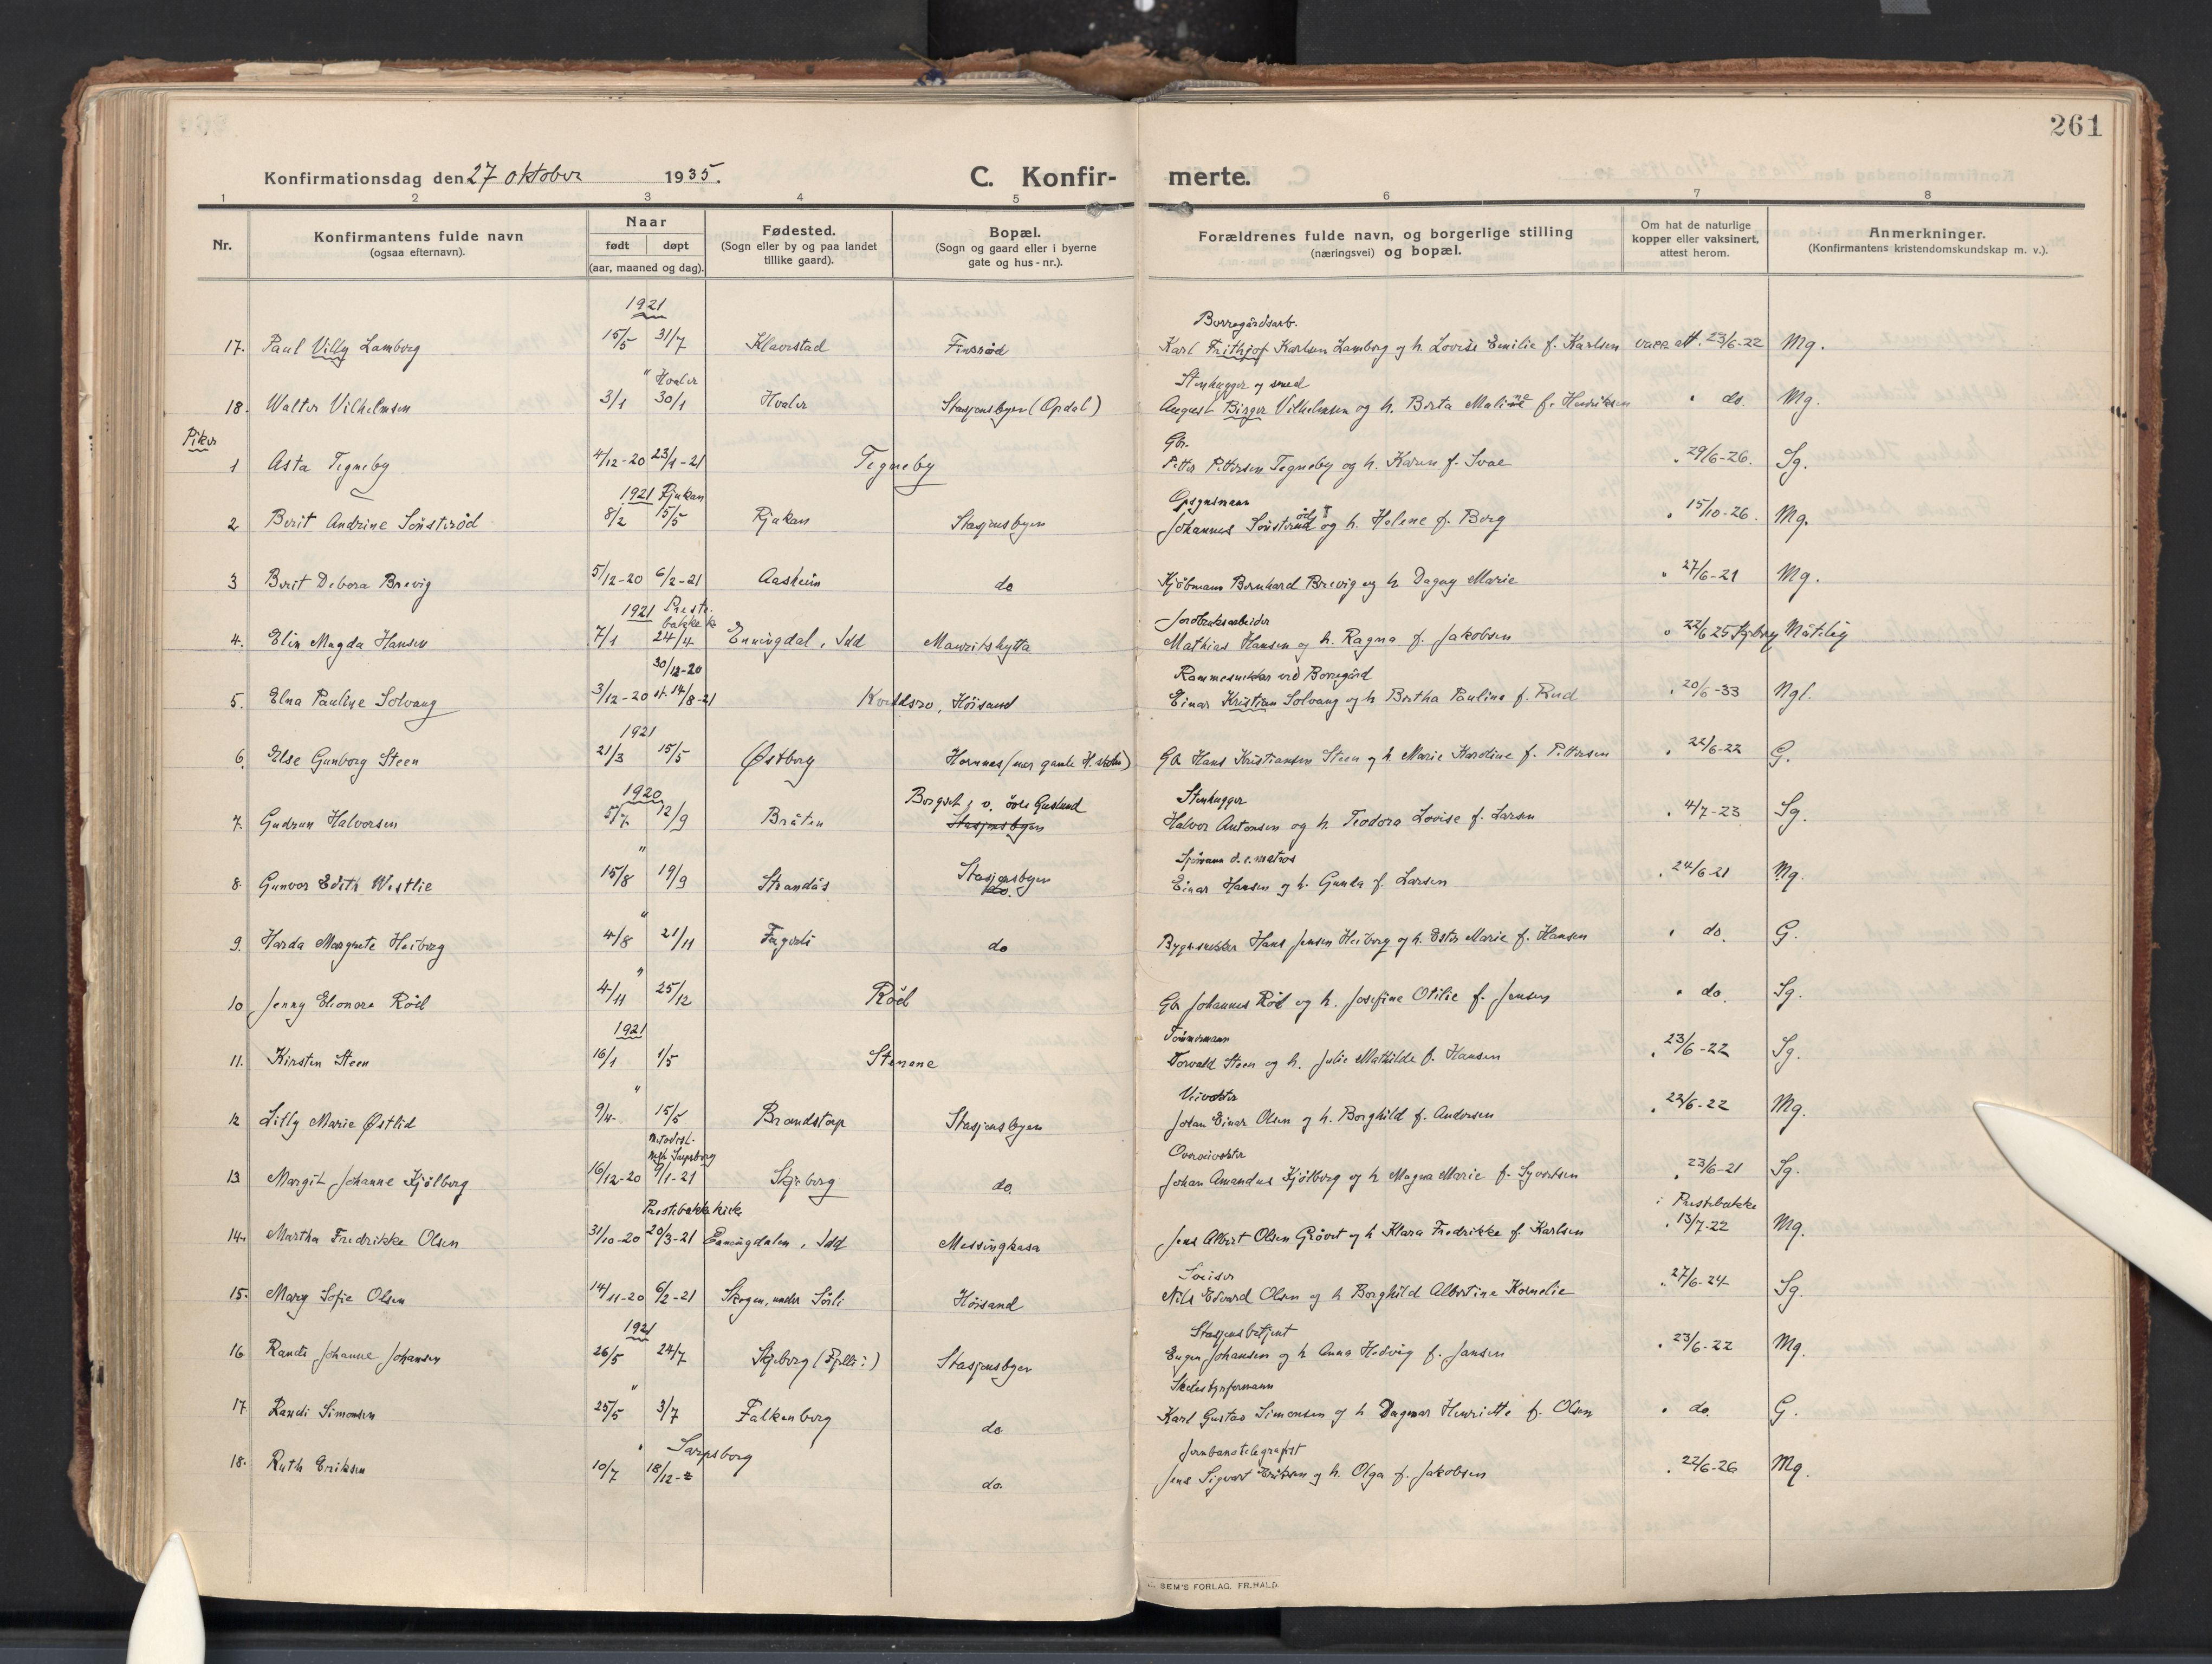 261
Konfirmationsdag den 27 oktober 1935.
C. Konfirmerte.
1 2 3 4 5 6 7 8
Nr.
Konfirmantens fulde navn
(ogsaa efternavn).
Naar
født døpt
(aar, maaned og dag).
Fødested.
(Sogn eller by og paa landet
tillike gaard).
Bopæl.
(Sogn og gaard eller i byerne
gate og hus-nr.).
Forældrenes fulde navn, og borgerlige stilling
(næringsvei) og bopæl.
Om hat de naturlige
kopper eller vaksinert,
attest herom.
Anmerkninger.
(Konfirmantens kristendomskundskap m. v.).
1921
Borregårdsarb.
17. Paul Villy Lamborg 15/5 31/7 Klavestad Finsrød Karl Frithjof Karlsen Lamborg og h. Lovise Emilie f. Karlsen vacc att. 23/6-22 Mg.
" Hvaler
Stenhugger og smed
18. Walter Vilhelmsen 3/1 30/1 Hvaler Stasjonsbyen (Opdal) August Birger Vilhelmsen og h. Berta Maline f. Hendriksen " do. Mg.
Piker
Gb.
1 Asta Tegneby 4/12-20 23/1-21 Tegneby Petter Pettersen Tegneby og h. Karen f. Svae " 29/6-26. Sg.
1921 Rjukan
Opsynsmann
2 Berit Andrine Sønsterød 8/2 15/5 Rjukan Stasjonsbyen Johannes Sønsterød og h. Helene f. Borg " 15/10-26. Mg.
3 Berit Debora Brevig 5/12-20 6/2-21 Aasheim do Kjøbmann Bernhard Brevig og h Dagny Marie " 27/6-21 Mg.
1921 Preste-
bakke k
Jordbruksarbeider
4. Elin Magda Hansen 7/1 24/4 Enningdal, Idd Mauritshytta Mathias Hansen og h. Ragna f. Jakobsen " 22/6 25 Måtelig
30/12-20
Rammesnekker ved Borregård
5. Elna Pauline Solvang 3/12-20 st. 14/8-21 Kveldsro, Høisand Einar Kristian Solvang og h Bertha Pauline f. Rud " 20/6-33 Ngl.
1921
6. Else Gunborg Steen 21/3 15/5 Østborg Hornnes (nær gamle H. skole) Gb Hans Kristiansen Steen og h. Marie Karoline f. Pettersen " 22/6-22 G.
1920 Borgset, v. øvre Guslund
Stenhugger
7. Gudrun Halvorsen 5/7 12/9 Bråten Stasjonsbyen Halvor Antonsen og h. Teodora Lovise f. Larsen " 4/7-23 Sg.
" Sjømann d.e. matros
8. Gunvor Edith Westlie 15/8 19/9 Strandås Stasjonsbyen Einar Hansen og h. Gunda f. Larsen " 24/6-21 Mg.
do.
"
9. Harda Margrete Heiberg 4/8 21/11 do Bygn.snekker Hans Jensen Heiberg og h. Ester Marie f. Hansen " do. G.
"
10 Jenny Elionora Röed 4/11 25/12 Röed Gb Johannes Röd og h. Josefine Otilie f. Jensen " do. Sg.
1921
Tømmermann
11. Kirsten Steen 16/1 1/5 Stenene Torvald Steen og h. Julie Mathilde f. Hansen " 23/6-22 Sg.
"
Veivokter
12 Lilly Marie Østlid 9/4 15/5 Brandstorp Stasjonsbyen Johan Einar Olsen og h. Borghild f. Andersen " 22/6-22 Mg.
Metodist-
mgh Sarpsborg
13 Margit Johanne Kjølberg 16/12-20 9/1-21 Skjeberg do. Johan Amandus Kjølberg og h Magna Marie f. Syversen " 23/6-21 Sg.
Prestebakke kirke
i Prestebakke
14. Martha Fredrikke Olsen 31/10-20 20/3-21 Enningdalen, Idd Messingkasa Jens Albert Olsen Grövet og h Klara Fredrikke f. Karlsen " 13/7-22 Mg.
Sveiser
15. Mary Sofie Olsen 14/11-20 6/2-21 Skogen, under Sörli Høisand Nils Edvard Olsen og h Borghild Albertine Kornelie " 27/6-24 Sg.
1921
Stasjonsbetjent
16 Randi Johanne Johansen 26/5 24/7 Stasjonsbyen Eugen Johansen og h Anna Hedvig f. Jansen " 23/6-22 Mg.
"
17 Randi Simonsen 25/5 3/7 Falkenborg do Karl Gustav Simonsen og h Dagmar Henriette f. Olsen " do. G.
" Sarpsborg
Jernbanetelegrafist
18. Ruth Eriksen 10/7 18/12 do. Jens Sigvart Eriksen og h. Olga f. Jakobsen " 22/6-26 Mg.
SEM'S FORLAG. FR.HALD.